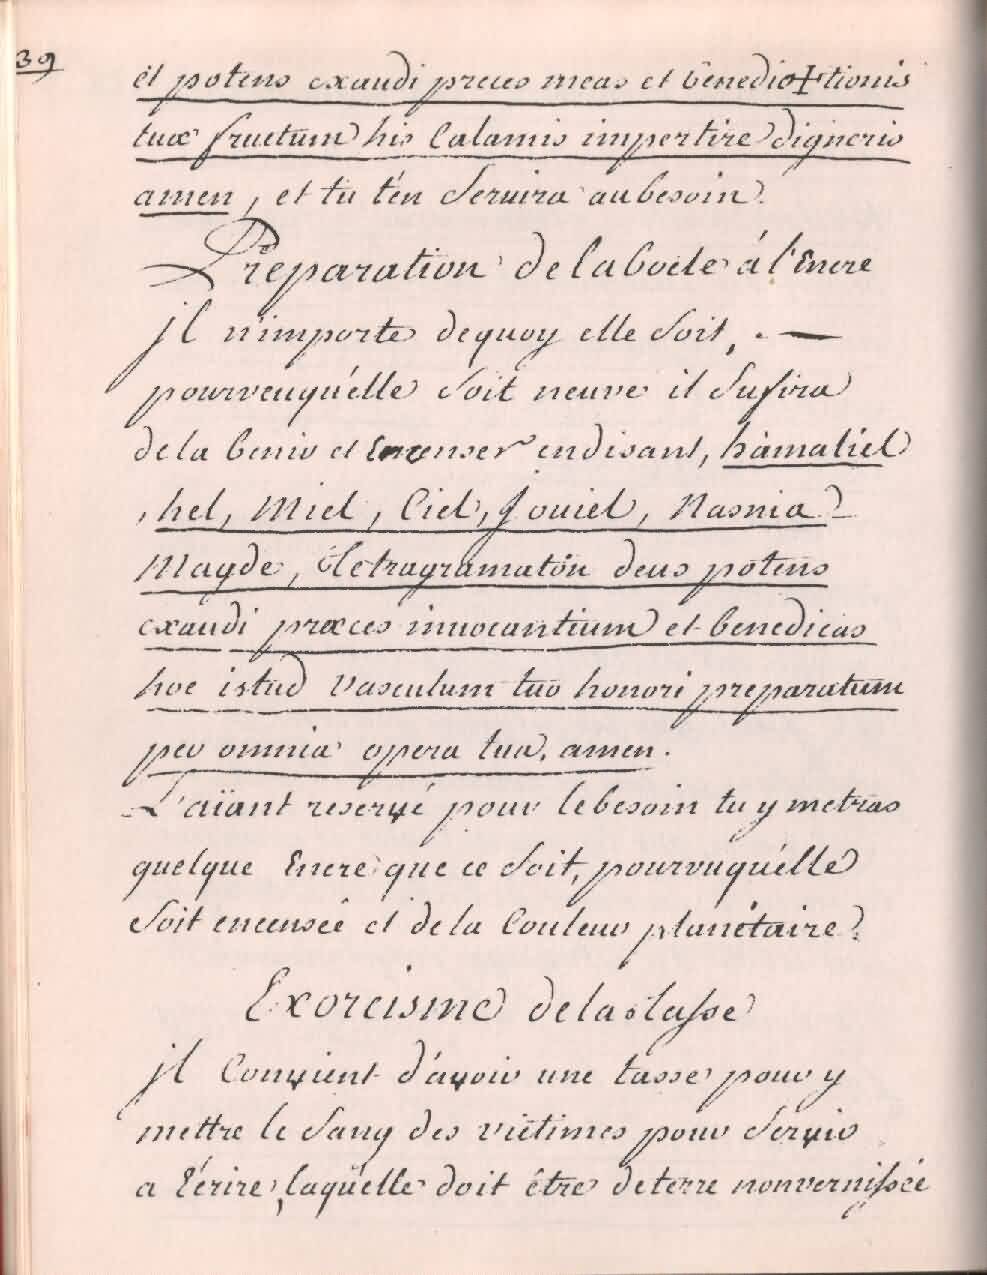 39
et potens exaudi preces meas et benedic✝tionis
tuæ fructum his Calamis impertire digneris
amen, et tu t'en Servira au besoin.
Préparation de la boete á l'Encre
jl n'importe de quoy elle Soit, . —
pourveuqu'elle Soit neuve il Sufira
de la benir et Encenser en disant, hàmaliel
, hel, Miel, Ciel, Jouiel, Nasnia
Magde, Tetragramatôn deus potens
exaudi præces innocantium et benedicas
hoc istud vasculum tuo honori preparatum
per omnia opera tua. amen.
L'aïant reservé pour le besoin tu y metras
quelque Encre que ce Soit, pourvuqu'elle
Soit encensée et de la Couleur planétaire.
Exorcisme de la tasse
jl Convient d'avoir une tasse pour y
mettre le Sang des victimes pour Servir
a l'écrire, laquelle doit être de terre nonvernissée